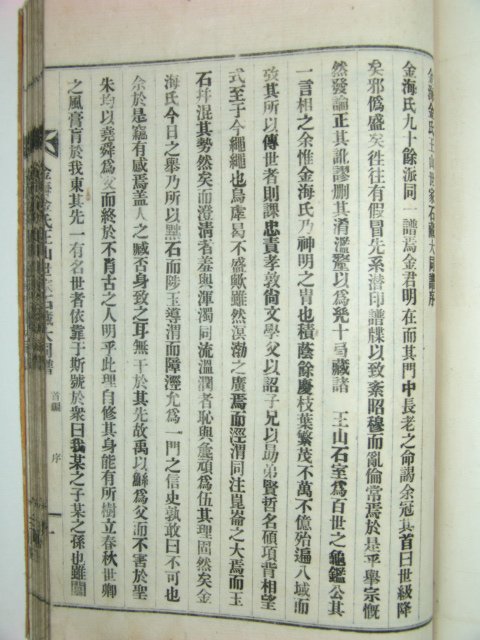 金海金氏王山世家石藏大同譜序
金海氏九十餘派同一譜焉金君明在而其門中長老之命謁余冠其首曰世級降
矣邪僞盛矣徃徃有假冒先系潛印譜牒以致紊昭穆而亂倫常焉於是乎舉宗慨
然發論正其訛謬刪其淆濫鏨以爲甃十曷藏諸　王山石室爲百世之龜鑑公其
一言相之余惟金海氏乃神明之胄也積蔭餘慶枝葉繁茂不萬不億殆遍八域而
攷其所以傳世者則課忠責孝敦尙文學父以詔子兄以勗弟賢哲名碩項背相望
式至于今繩繩也烏虖曷不盛歟雖然溟渤之廣焉而涇渭同注崑崙之大焉而玉
石幷混其勢然矣而澄淸者羞與渾濁同流溫潤者恥與麁頑爲伍其理固然矣金
海氏今日之舉乃所以黜石而陟玉導渭而障涇允爲一門之信史孰敢曰不可也
余於是竊有感焉盖人之臧否身致之耳無干於其先故禹以鯀爲父而不害於聖
朱均以堯舜爲父而終於不肖古之人明乎此理自修其身能有所樹立春秋世卿
之風膏肓於我東其先一有名世者依靠于斯號於衆曰我某之子某之孫也雖闒
金海金氏王山世家石藏大同譜
首編
序
一